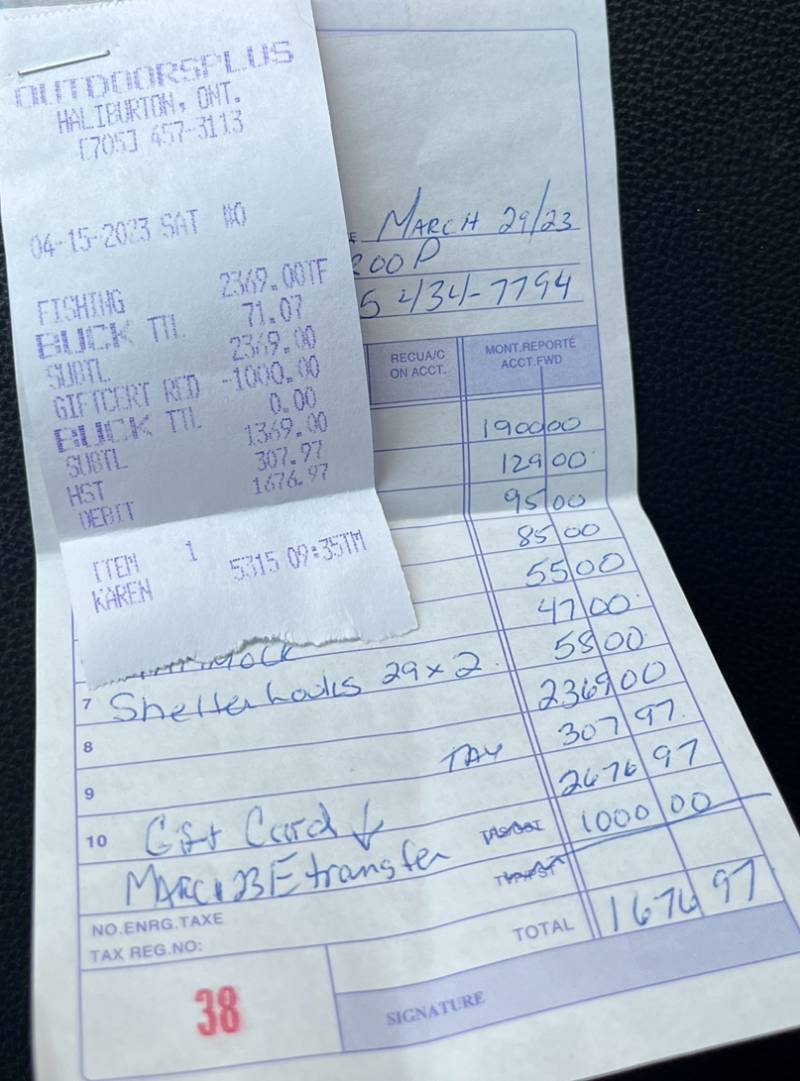 OUTDOORSPLUS
HALIBURTON, ONT.
[705] 457-3113
04-15-2023 SAT #0
FISHING 2369.00TF
BUCK TTL 71.07
SUBTL 2369.00
GIFTCERT RED -1000.00
BUCK TTL 0.00
SUBTL 1369.00
HST 307.97
DEBIT 1676.97
ITEM 1
KAREN 5315 09:35TM
MARCH 29/23
200 P
5 434-7794
REÇUA/C MONT.REPORTÉ
ON ACCT. ACCT.FWD
1900 00
129 00
95 00
85 00
55 00
47 00
58 00
7 Shelter hooks 29 x 2
8 2369 00
9 TAX 307 97
2676 97
10 Gift Card ↓ 1000 00
MARCH 23 E transfer
NO.ENRG.TAXE
TAX REG.NO:
TOTAL 1676 97
38
SIGNATURE